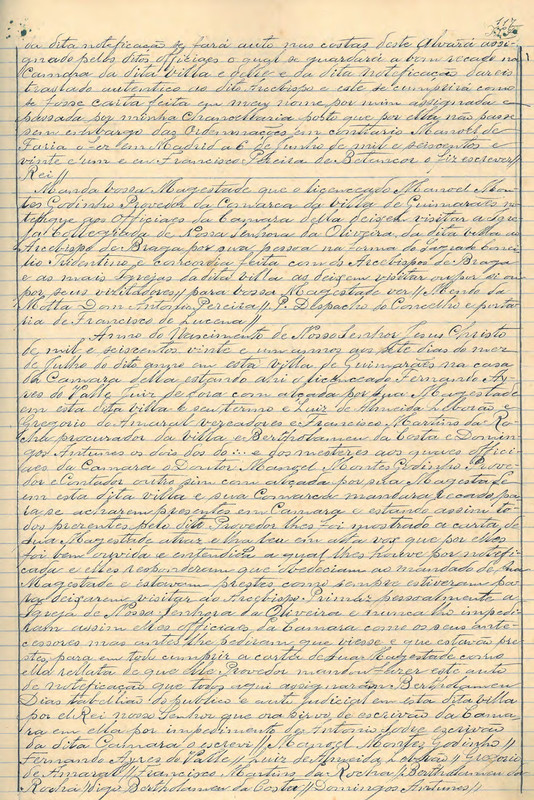 da dita notificação se fará auto nas costas deste Alvará assi-
gnado pelos ditos officiaes o qual se guardará a bom recado na
Camara da dita villa e delle e da dita notificação dareis
traslado autentico ao dito Arcebispo e este se cumprirá como
se fosse carta feita em meu nome por mim assignada e
passada por minha Chancellaria posto que por ella não passe
sem embargo das Ordennações em contrario Manoel de
Faria o fez em Madrid a 6 de Junho de mil e seiscentos e
vinte e um e eu Francisco Pereira de Betencor o fiz escrever //
Rei //
Manda vossa Magestade que o licenceado Manoel Mon-
tes Godinho Provedor da Comarca da villa de Guimarães no-
tefique aos Officiaes da Camara della deixem visitar a Igre-
ja Collegiada de Nossa Senhora da Oliveira, da dita villa ao
Arcebispo de Braga por sua pessoa na forma do sagrado Conci-
lio Tridentino e concordia feita com os Arcebispos de Braga
e as mais Igrejas da dita villa as deixem visitar ou por si ou
por seus visitadores // para vossa Magestade ver // Mendo da
Motta Dom Antonio Pereira // P. Despacho do Concelho e porta-
ria de Francisco de Lucena //
Anno do Nascimento de Nosso Senhor Jesus Christo
de mil e seiscentos vinte e um annos aos sete dias do mez
de Julho do dito anno em esta villa de Guimarães na casa
da Camara della estando ahi o licenceado Fernando Ay-
res do Valle Juiz de fora com alçada por sua Magestade
em esta dita villa e seu termo e Luiz de Almeida Leborão e
Gregorio do Amaral vereadores e Francisco Martins da Ro-
cha procurador da villa e Bertholameu da Costa e Domin-
gos Antunes os dois dos do... e dos mesteres aos quaes offici-
aes da Camara o Doutor Manoel Montes Godinho Prove-
dor e Contador outro sim com alçada por sua Magestade
em esta dita villa e sua Comarca mandara recado pa-
ra se acharem presentes em Camara e estando assim to-
dos prezentes pelo dito Provedor lhes foi mostrado a carta de
sua Magestade atraz e lha leu em alta voz que por elles
foi bem ouvida e entendida a qual lhes houve por notefi-
cada e elles responderam que obedeciam ao mandado de sua
Magestade e estavam prestes como sempre estiveram pa-
ra deixarem visitar ao Arcebispo Primaz pessoalmente a
Igreja de Nossa Senhora da Oliveira e nunca lho impedi-
ram assim elles officiaes da Camara como os seus ante-
cessores mas antes lhe pediram que viesse e que estavão pre-
stes para em tudo cumprir a carta de sua Magestade como
ella relata de que elle Provedor mandou fazer este auto
de notificação que todos aqui assignaram Bertholameu
Dias tabellião do publico e auto judicial em esta dita villa
por el Rei nosso Senhor que ora sirvo de escrivão da Cama-
ra em ella por impedimento de Antonio escrivão
da dita Camara o escrevi // Manoel Montes Godinho //
Fernando Ayres do Valle // Luiz de Almeida Leborão // Gregorio
do Amaral // Francisco Martins da Rocha // Bertholameu da
Rocha digo Bertholameu da Costa // Domingos Antunes //